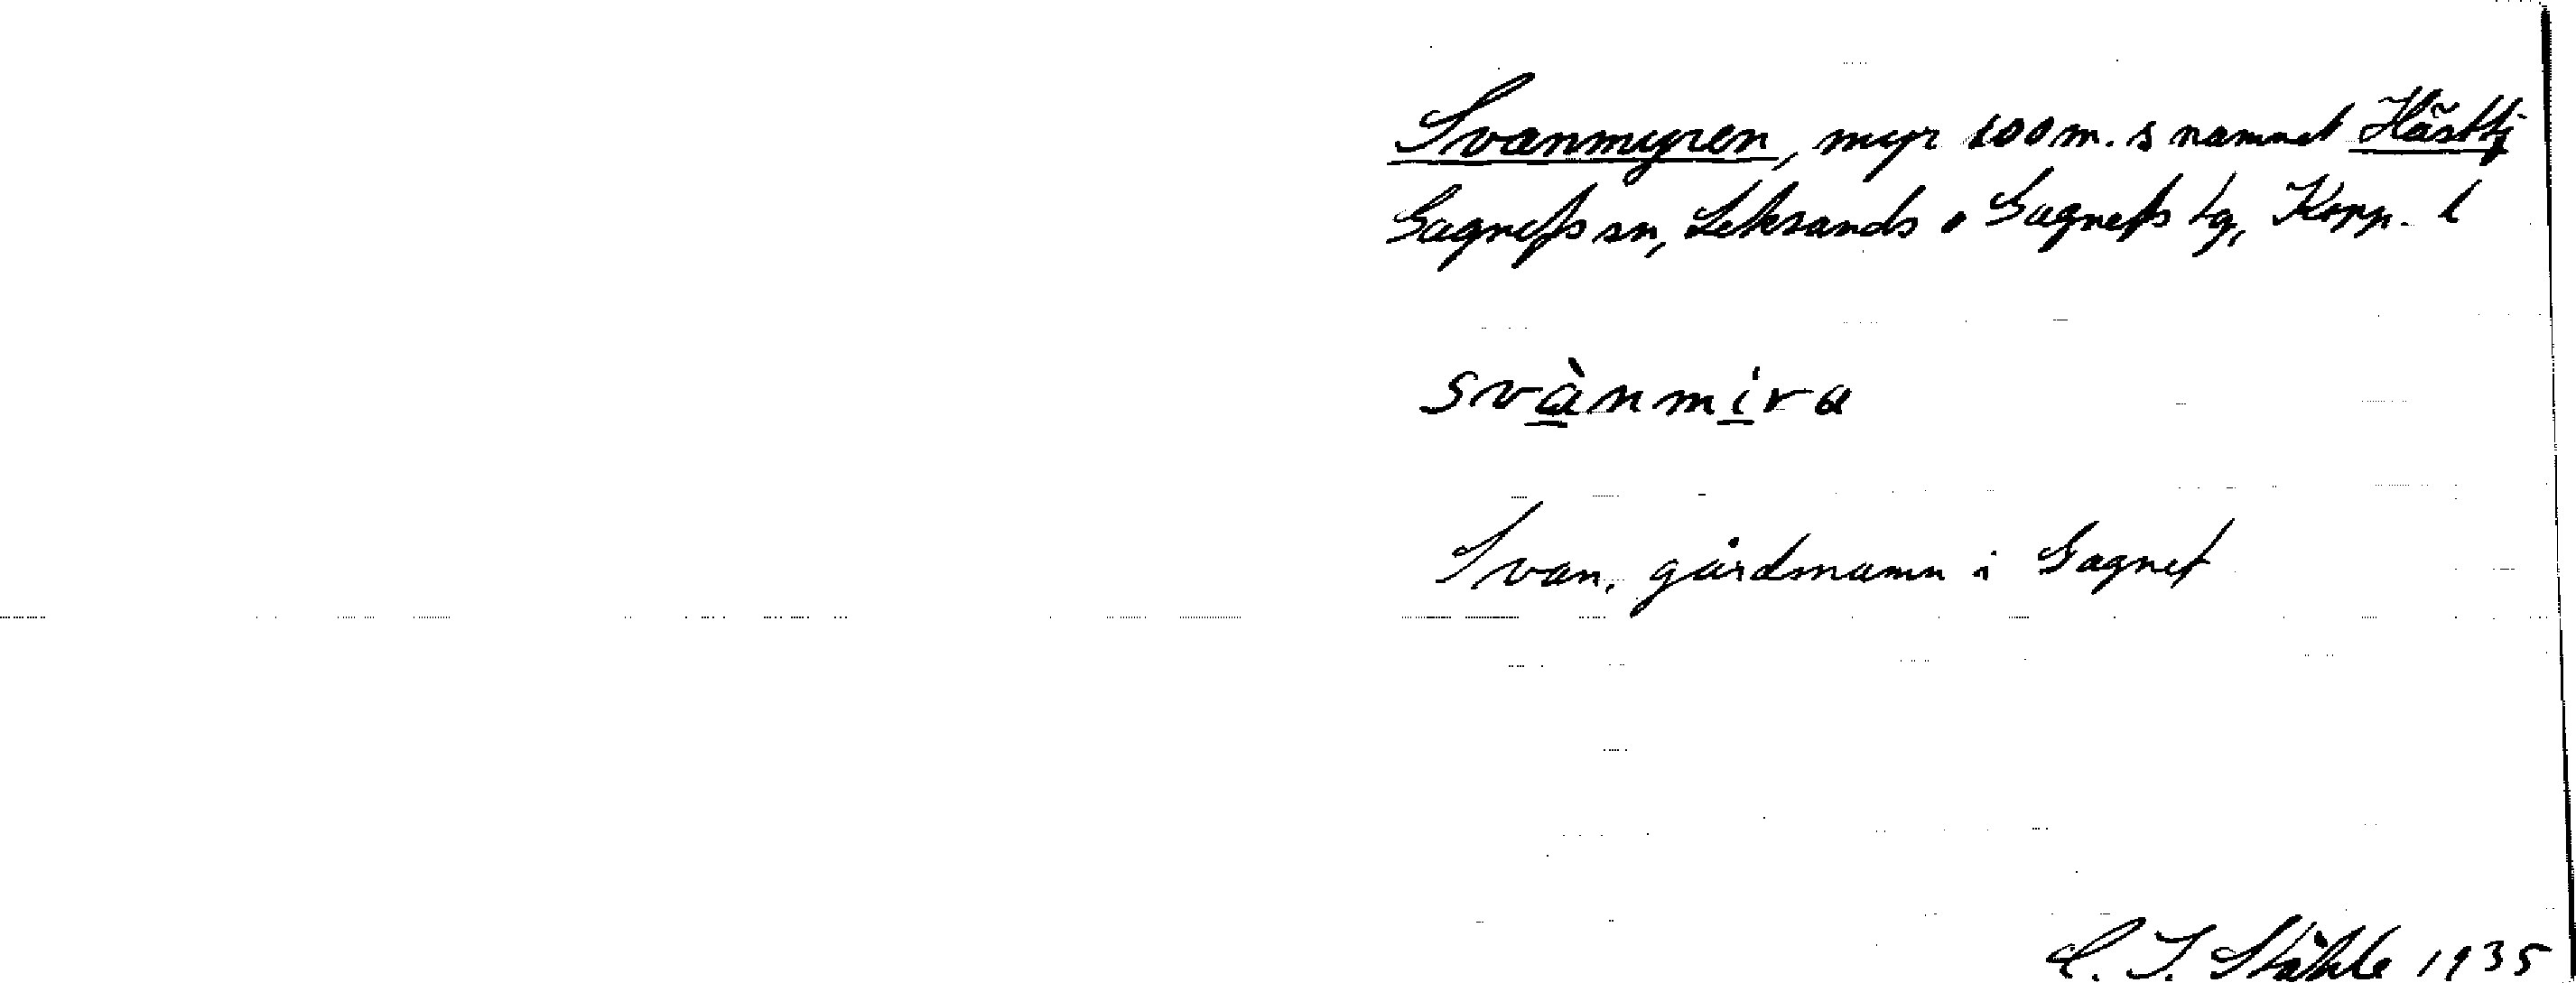 Svanmyren, myr 100 m. s namnet Hästtj
Gagnefs sn, Leksands o Gagnefs tg, Kopp. l
svànmira
Svan, gårdnamn i Gagnef
C. I. Ståhle 1935